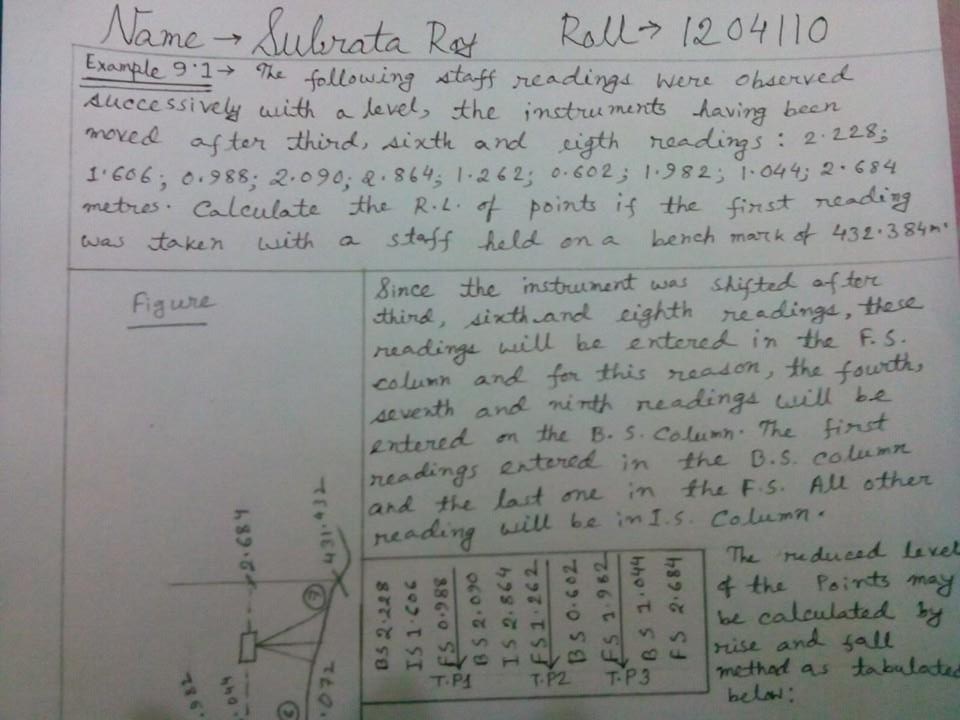 Name → Subrata Roy Roll → 1204110
Example 9.1 → The following staff readings were observed
successively with a level, the instruments having been
moved after third, sixth and eigth readings : 2.228;
1.606; 0.988; 2.090; 2.864; 1.262; 0.602; 1.982; 1.044; 2.684
metres. Calculate the R.L. of points if the first reading
was taken with a staff held on a bench mark of 432.384m.
Figure
2.684
431.432
7
.072
.982
.044
6
Since the instrument was shifted after
third, sixth and eighth readings, these
readings will be entered in the F.S.
column and for this reason, the fourth,
seventh and ninth readings will be
entered on the B.S. Column. The first
readings entered in the B.S. column
and the last one in the F.S. All other
reading will be in I.S. Column.
BS 2.228
IS 1.606
FS 0.988
BS 2.090
IS 2.864
FS 1.262
BS 0.602
FS 1.982
BS 1.044
FS 2.684
T.P1 T.P2 T.P3
The reduced level
of the Points may
be calculated by
rise and fall
method as tabulated
below: